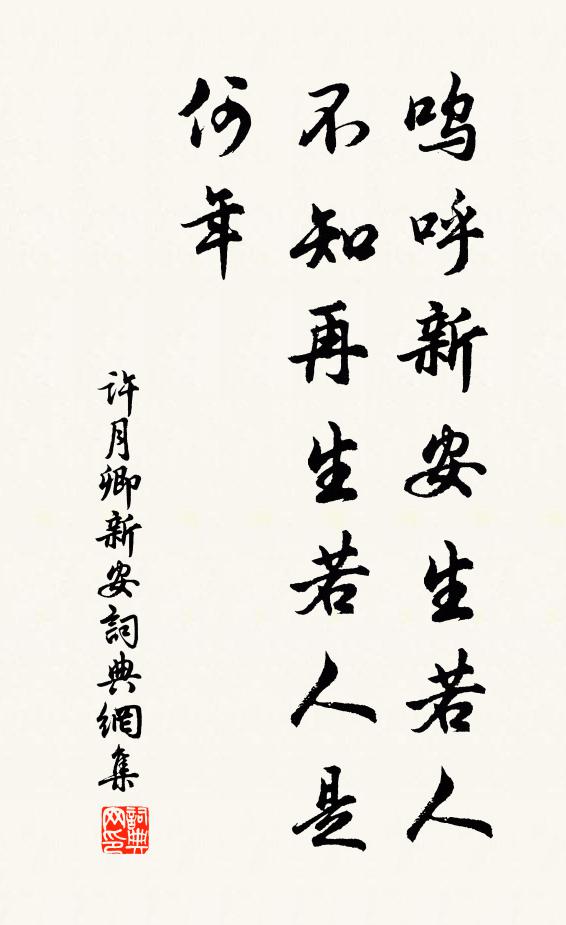 呜呼新安生若人
不知再生若人是
何年
许月卿新安詞典網集
詞典网印